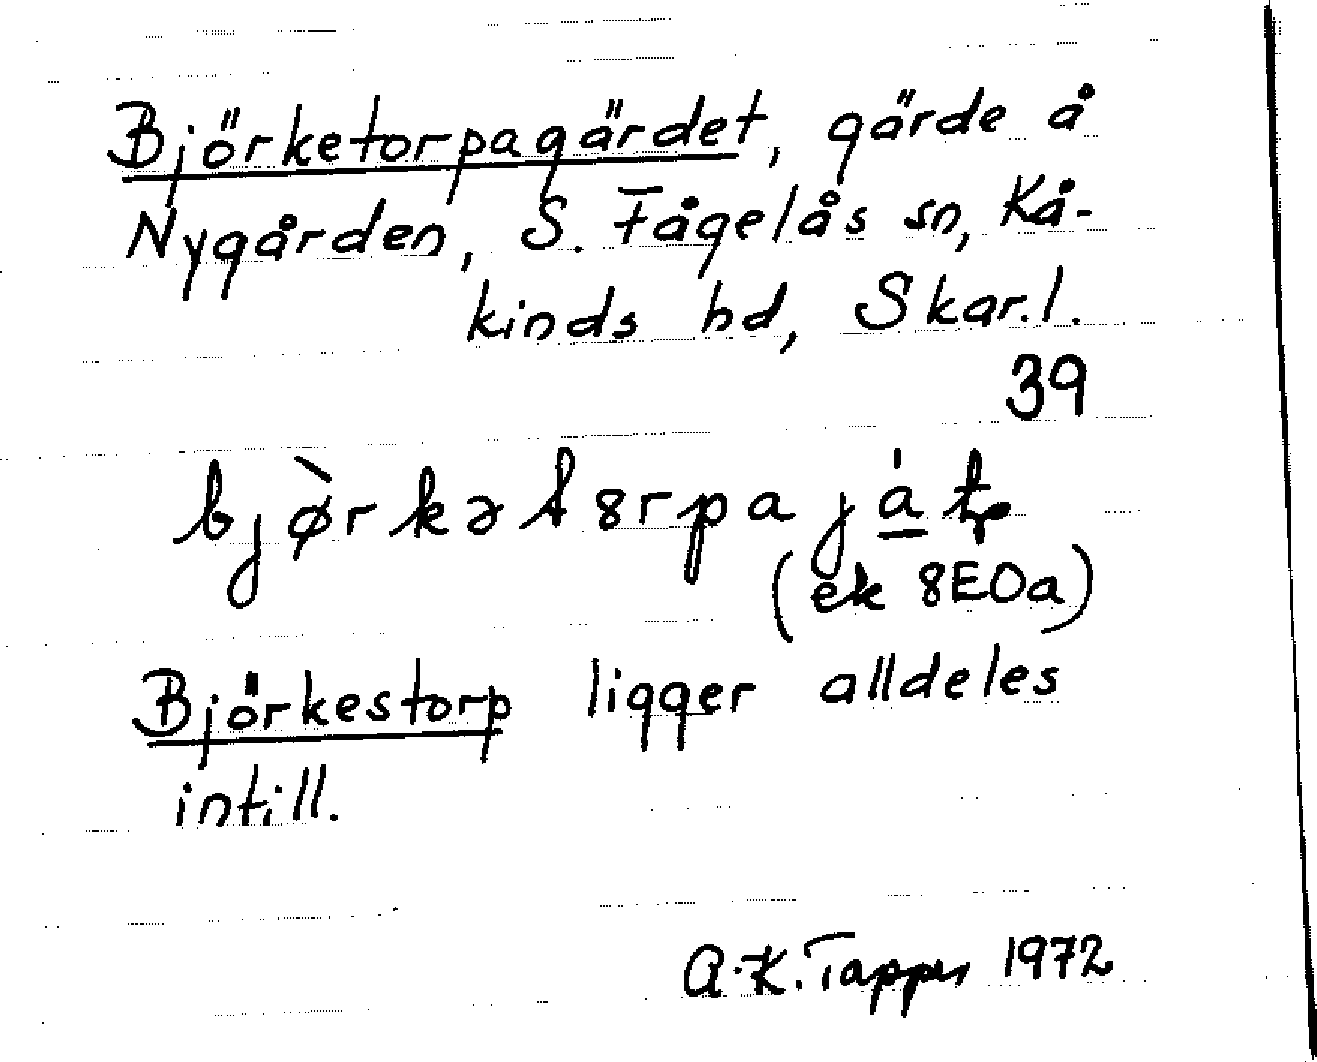 Björketorpagärdet, gärde å
Nygården, S. Fågelås sn, Kå-
kinds hd, Skar.l.
39
(ek 8EDa)
Björkestorp ligger alldeles
intill.
A.-K. Tapper 1972